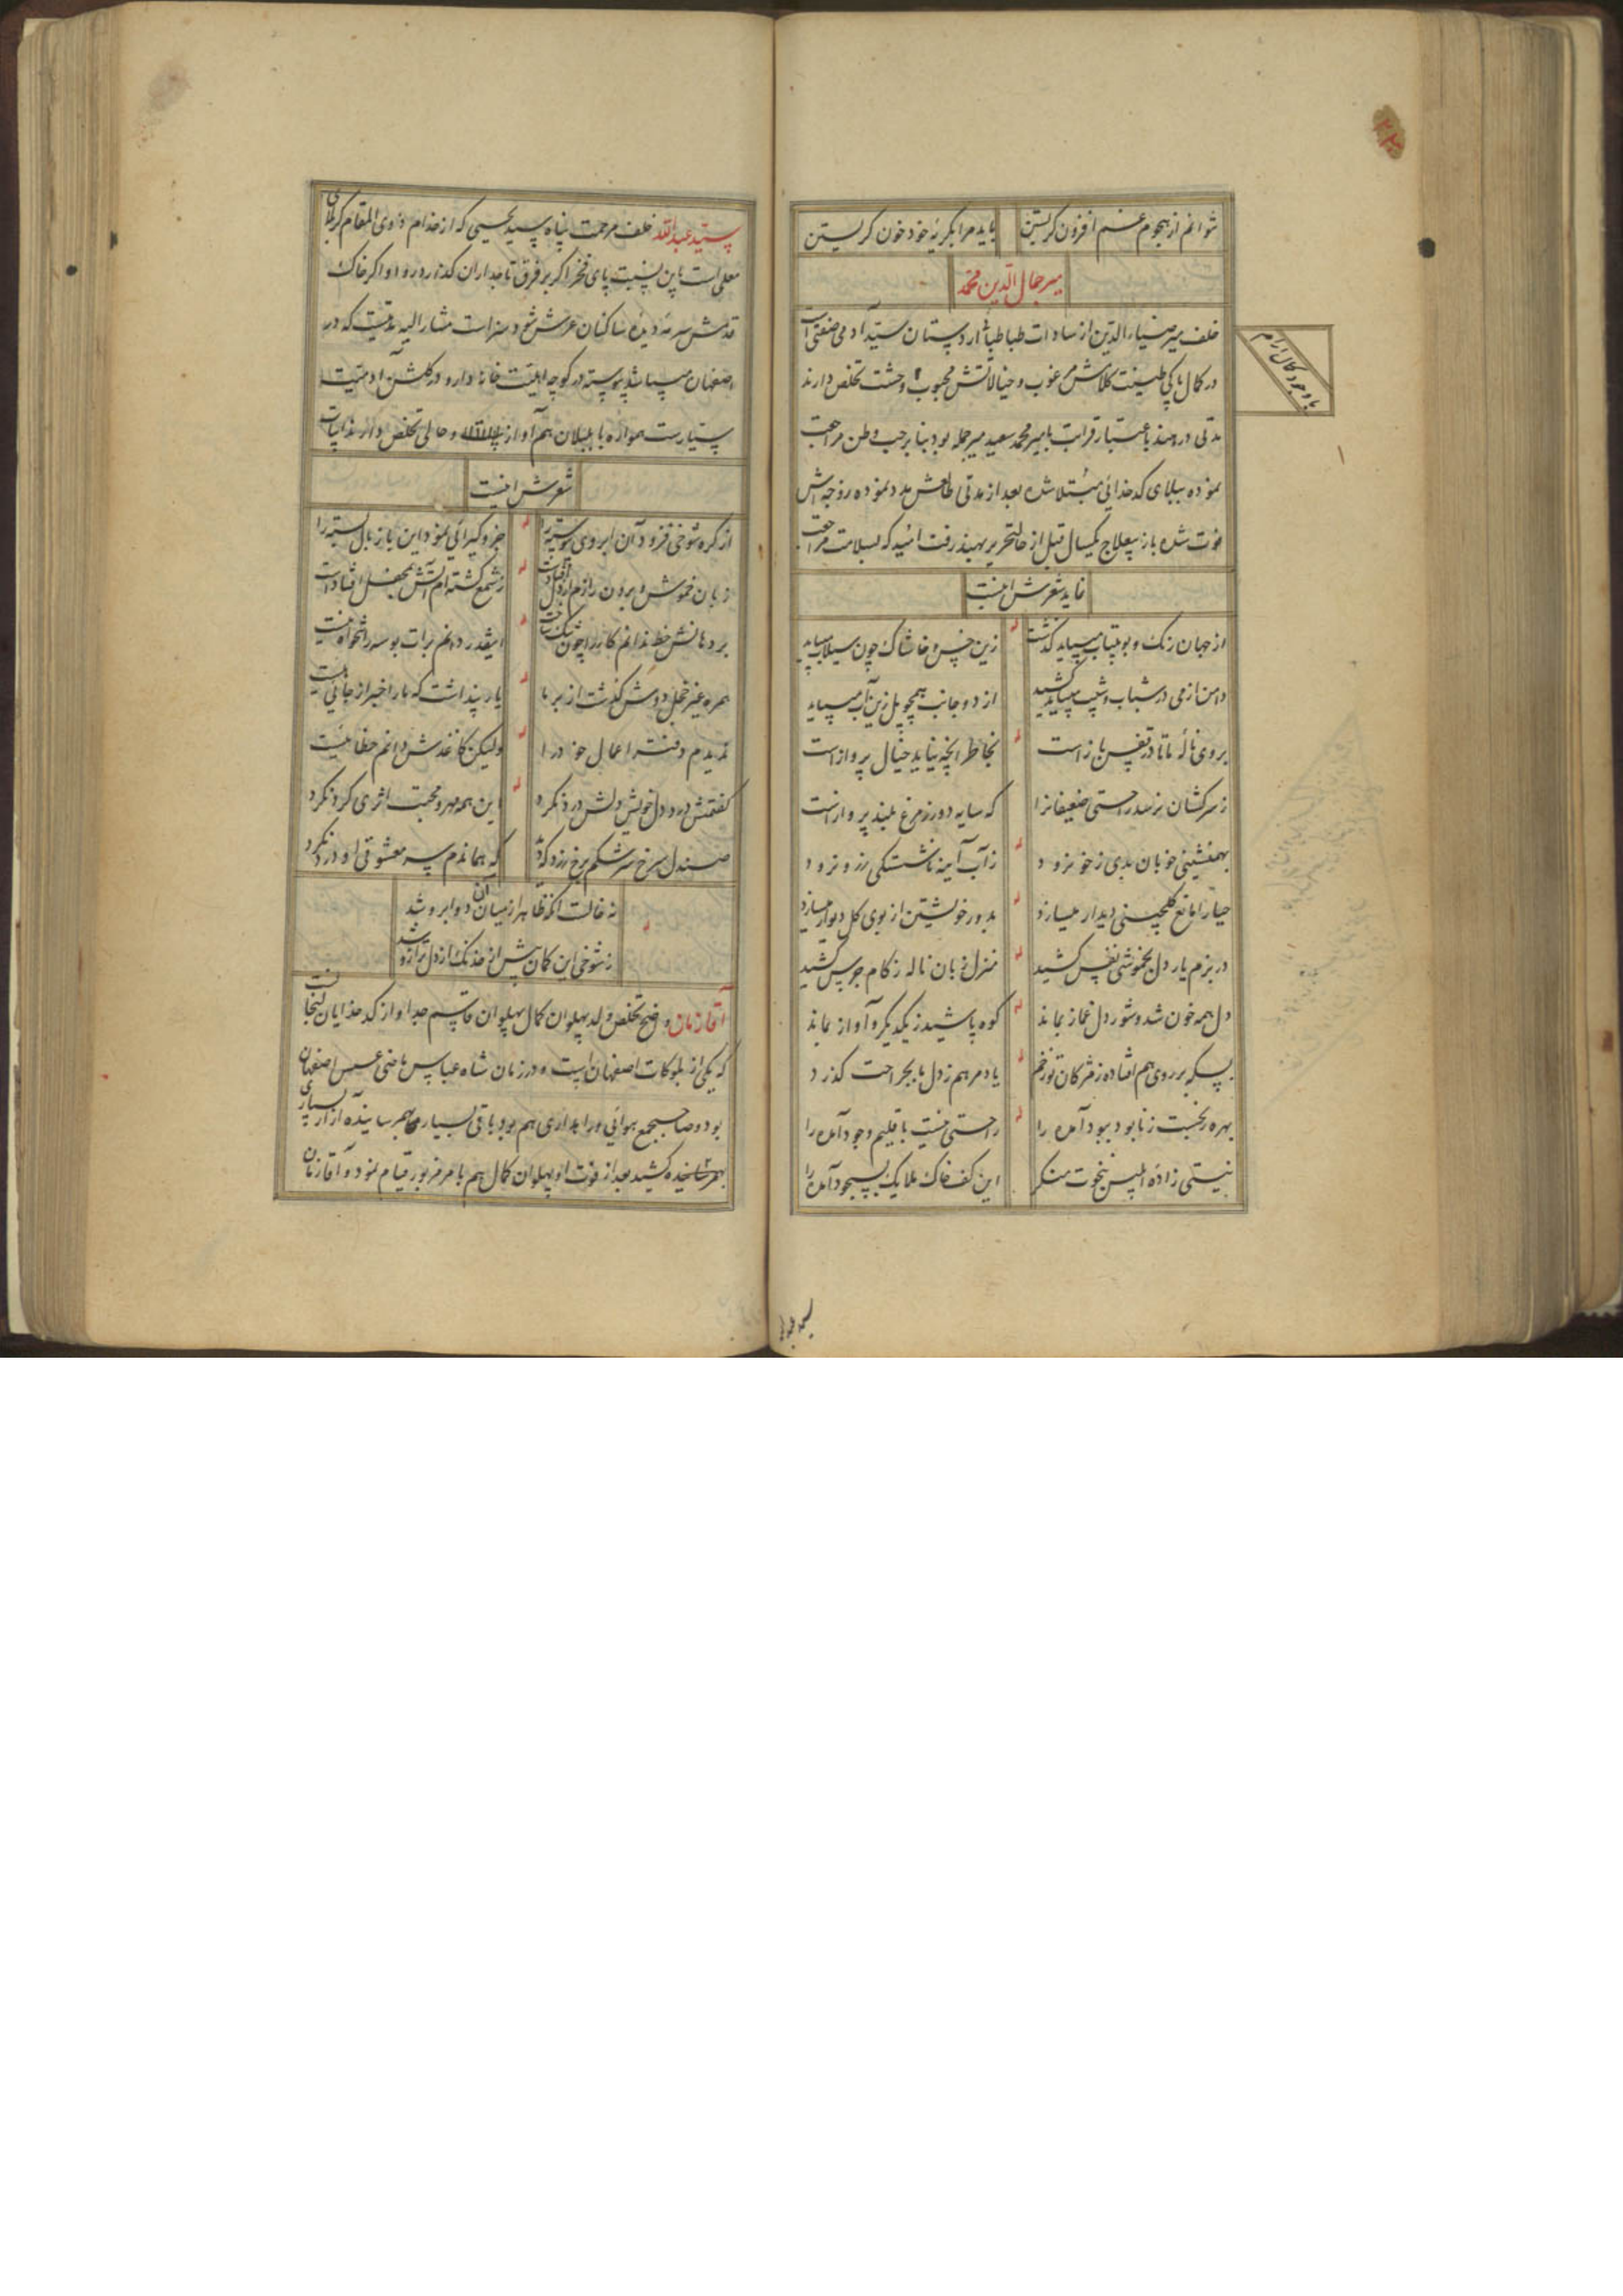 نتوانم از هجوم غم افزون گریستن باید مرا بگریهٔ خود خون گریستن
میر جمال الدین محمد
خلف میر ضیاء الدین از سادات طباطباء اردستان سید آدمی صفتی است
با وجود کمال آرام
در کمال پاکی طینت کلامش مرغوب و خیالاتش محبوب وحشت تخلص دارند
مدتی در هند باعتبار قرابت با میر محمد سعید میر جمله بود بنابر حب وطن مراجعت
نموده ببلای کدخدائی مبتلا شده بعد از مدتی طالعش مدد نموده زوجه اش
فوت شده باز بعلاج یکسال قبل از حالتحریر بهند رفت امید که بسلامت مراجعت
نماید شعرش اینست
از جهان رنگ و بو بیتاب میباید گذشت زین خس و خاشاک چون سیلاب میباید
دامن از می در شباب و شیب میباید کشید از دو جانب همچو پل زین آب میباید
بروی نالهٔ ما تا در قفس باز است بخاطر آنچه نیاید خیال پرواز است
ز سرکشان نرسد راحتی ضعیفانرا که سایه دور ز مرغ بلند پرواز است
بهمنشینی خوبان بدی ز خو نرود ز آب آینه ناشستگی ز رو نرود
حیا را مانع گلچینی دیدار میسازد بدور خویشتن از بوی گل دیوار میسازد
در بزم یار دل بخموشی نفس کشید منزل زبان ناله ز کام جرس کشید
دل همه خون شد و شور دل غماز بماند کوه پاشید ز یکدیگر و آواز بماند
بسکه بر روی هم افتاده ز مژگان تو زخم یاد مرهم ز دل ما بجراحت گذرد
بهره نیست ز نابود ببود آمده را راحتی نیست باقلیم وجود آمده را
نیستی زادهٔ ابلیس بنخوت منگر این کف خاک ملایک بسجود آمده را
سید عبدالله خلف مرحمت پناه سید یحیی که از خدام ذوی المقام کربلای
معلی است باین نسبت پای فخر اگر بر فرق تاجداران گذارد روا و اگر خاک
قدمش سرمهٔ دیدهٔ ساکنان عرش شود سزاست مشارالیه مدتیست که در
اصفهان میباشد پیوسته در کوچه اهلیت خانه دارد و در گلشن آدمیت
سیار است همواره با بلبلان هم آواز و حالی تخلص دارند ابیات
شعرش اینست
از گره شوخی فزود آن ابروی پیوسته را جز و گیرائی نمود این باز بال بسته را
زبان خموش و برون رازم از دل افتاد است ز شمع کشته ام آتش بمحفل افتاد است
بر دهانش خط ندانم کار را چون تنگ ساخت اینقدر دانم برات بوسه را تنخواه نیست
همره غیر خجل دوش گذشت از بر ما یار پنداشت که ما را خبر از جائی نیست
ندیدم دفتر اعمال خود را ولیکن کاغذش دانم خطائیست
گفتمش درد دل خویش و دلش درد نکرد این همه مهر و محبت اثری کرد نکرد
صندل سرخ سرشکم برخ زرد که ها ندم سر معشوقی او درد نکرد
نه خالست آنکه ظاهر از میان آن دو ابرو شد
ز شوخی این کمان پیش از خدنگ از دل ترازو شد
آقا زمان واضح تخلص ولد پهلوان کمال پهلوان قاسم جد او از کدخدایان لنجانست
که یکی از بلوکات اصفهان است و در زمان شاه عباس ماضی عسس اصفهان
بود و صاحبجمع هوائی و راهداری هم بود باقی بسیاری بهمرسانیده آزار بسیاری
کشید بعد از فوت او پهلوان کمال هم بامر مزبور قیام نمود و آقا زمان